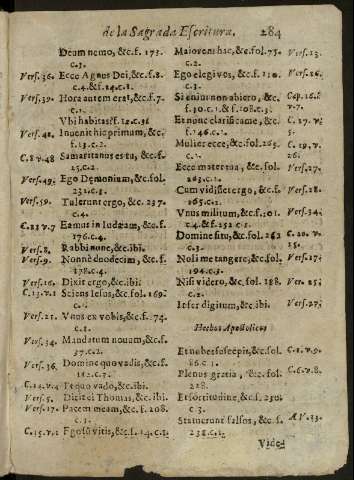 de la Sagrada Escritura. 284
Deum nemo, &c. f. 175.
c.3.
Vers.36. Ecce Agnus Dei, &c. f. 8.
c.4. & f. 14. c.1.
Vers.39. Hora autem erat, &c. f. 7.
c.1.
Vbi habitas? f. 14. c.3.
Vers.41. Inuenit hic primum, &c.
f. 13. c.2.
C.8 v.48 Samaritanus es tu, &c. f.
23. c.2.
Vers.49. Ego Demonium, &c. fol.
231. c.3.
Vers.59. Tulerunt ergo, &c. 237.
c.4.
C.11 v.7 Eamus in Iudæam, &c. f.
176. c.4.
Vers.8. Rabbi nunc, &c. ibi.
Vers.9. Nonnè duodecim, &c. f.
178. c.4.
Vers.16. Dixit ergo, &c. ibi.
C.13. v.1 Sciens Iesus, &c. fol. 169.
c.2.
Vers.21. Vnus ex vobis, &c. f. 74.
c.1.
Vers.34. Mandatum nouum, &c. f.
37. c.2.
Vers.36. Domine quo vadis, &c. f.
182. c.3.
C.14. v.4 Et quo vado, &c. ibi.
Vers.5. Dicit ei Thomas, &c. ibi.
Vers.17. Pacem meam, &c. f. 208.
c.3.
C.15. v.1 Ego sũ vitis, &c. f. 14. c.1.
Maiorem hac, &c. fol. 75. Vers.13.
c.2.
Ego elegi vos, &c. f. 110. Vers.16.
c.3.
Si enim non abiero, &c. Cap.16.
f. 10. c.1. & f. 108. c.3. v.7
Et nunc clarifica me, &c. C.17. v.
f. 146. c.1. 5.
Mulier ecce, &c. fol. 265. C.19. v.
c.1. 26.
Ecce mater tua, &c. fol. Vers.27.
263. c.1.
Cum vidisset ergo, &c. f. Vers.28.
265. c.2.
Vnus militum, &c. f. 101. Vers.34.
c.4. & f. 252 c.1.
Domine si tu, &c. fol. 262 C.20. v.
c.3. 15.
Noli me tangere, &c. fol. Vers.17.
194. c.3.
Nisi videro, &c. fol. 188. Ver. 25.
c.2.
Infer digitum, &c. ibi. Vers.27.
Hechos Apostolicos
Et nubes suscepit, &c. fol. C.1. v.9.
86. c.1.
Plenus gratia, &c. fol. C.6. v.8.
228.
Et fortitudine, &c. f. 230.
c.3.
Statuerunt falsos, &c. f. Æ V.33.
238. c.1.
Vide-